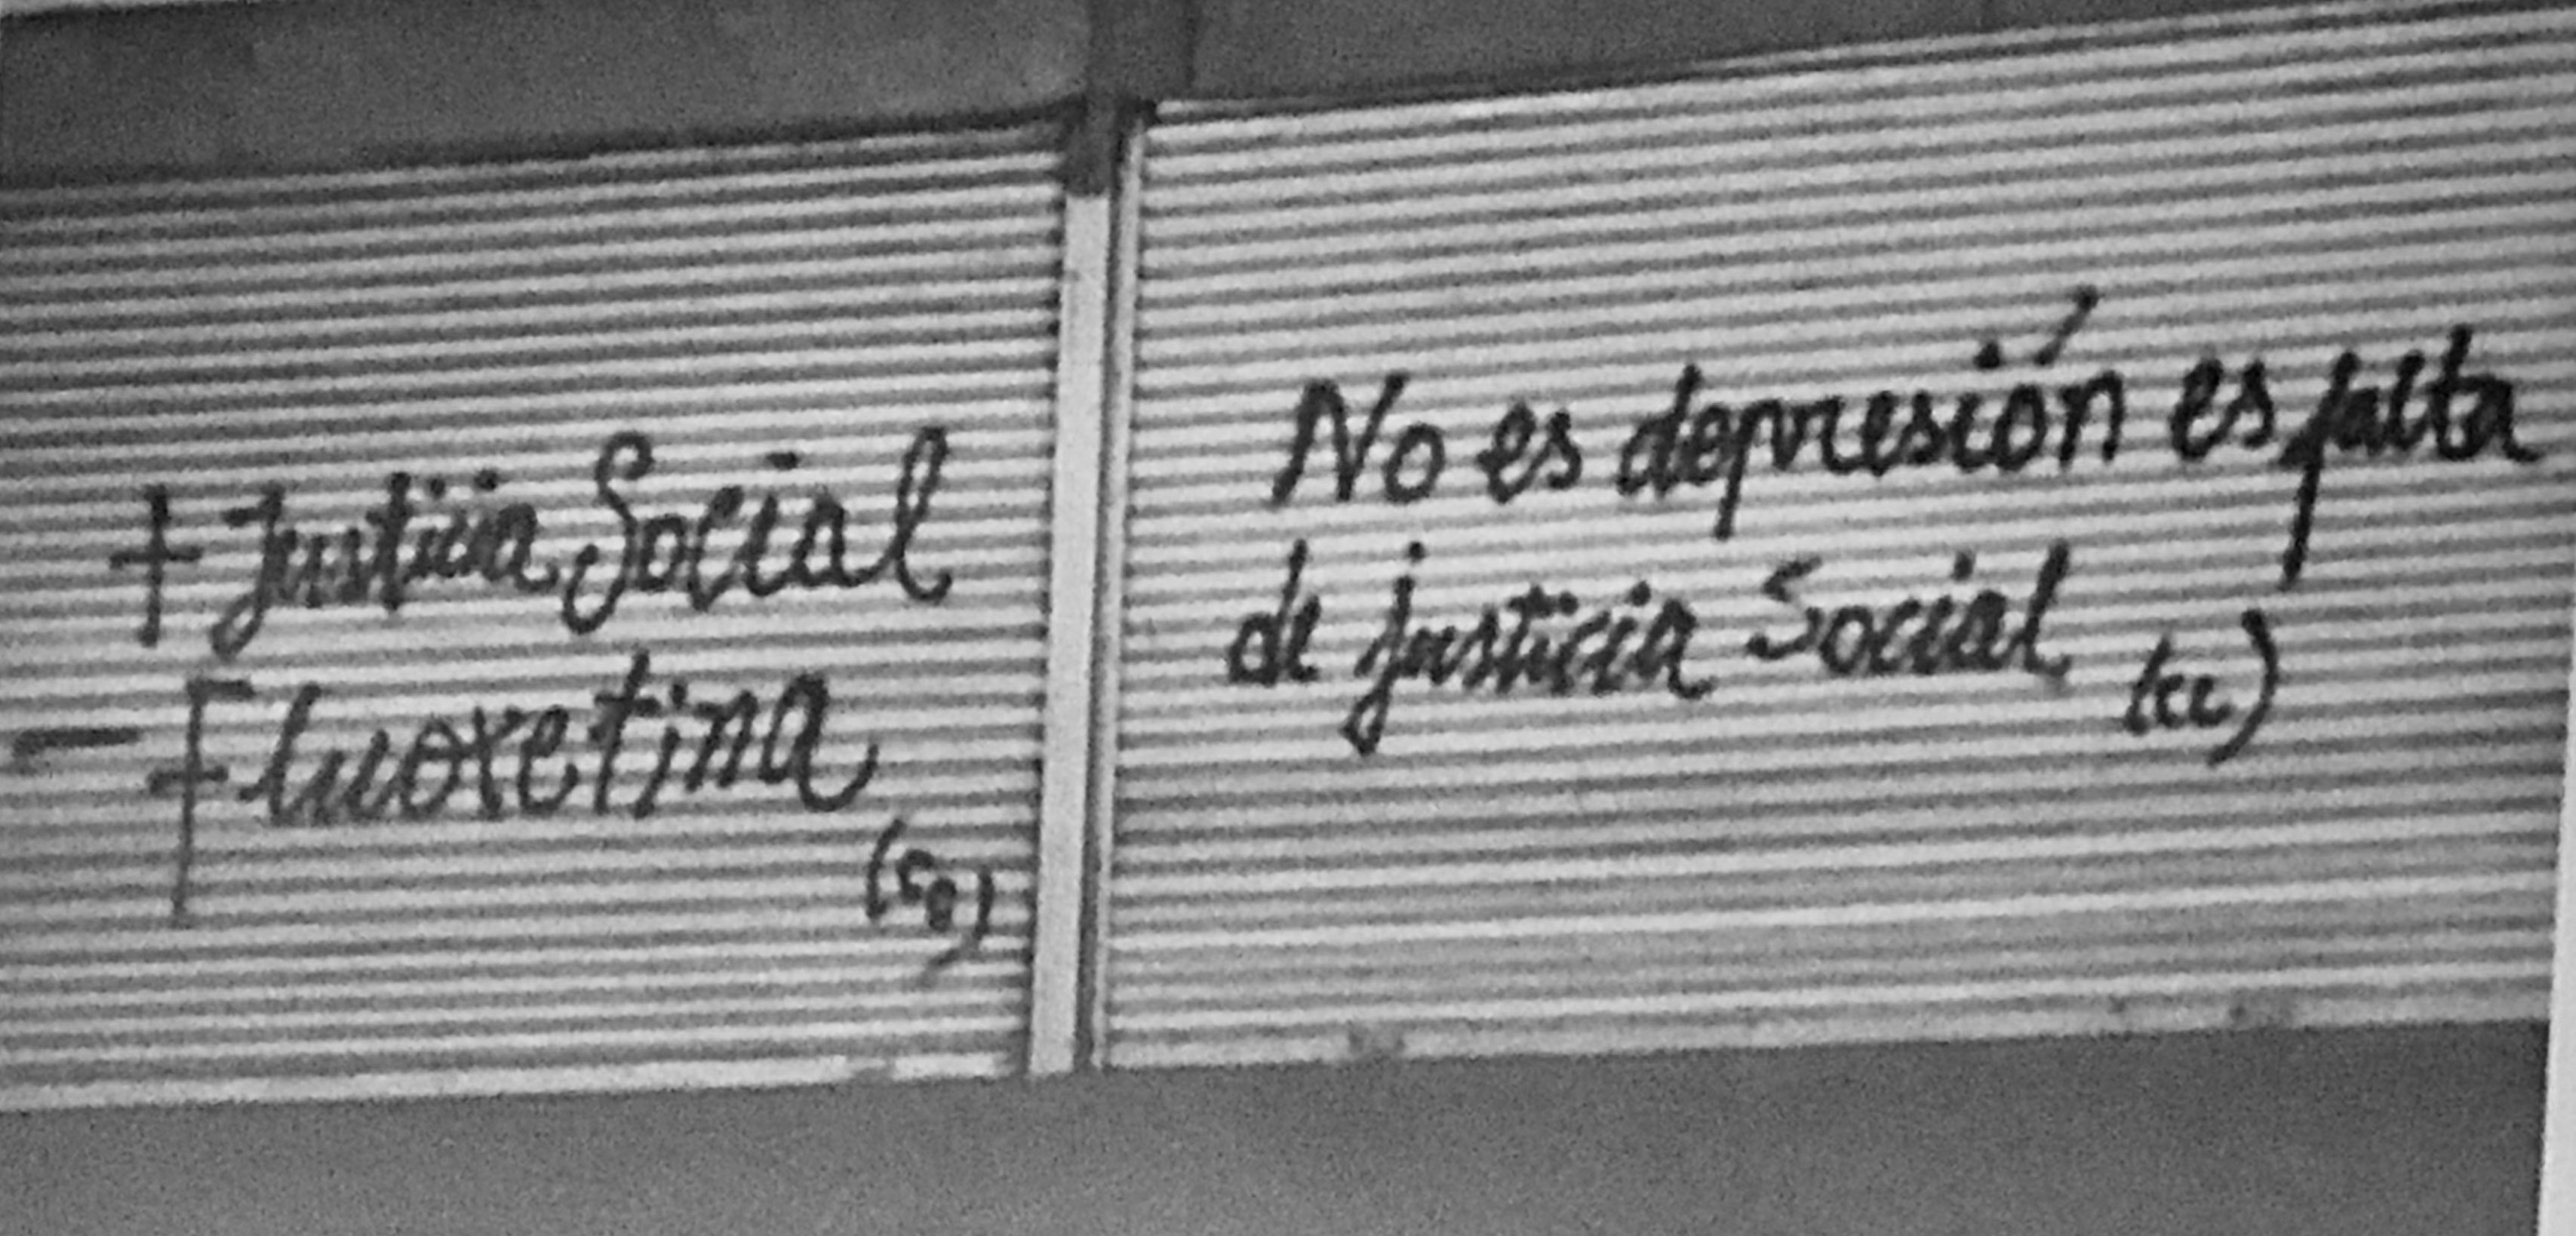 + Justicia Social
- Fluoxetina
No es depresión es falta
de justicia Social